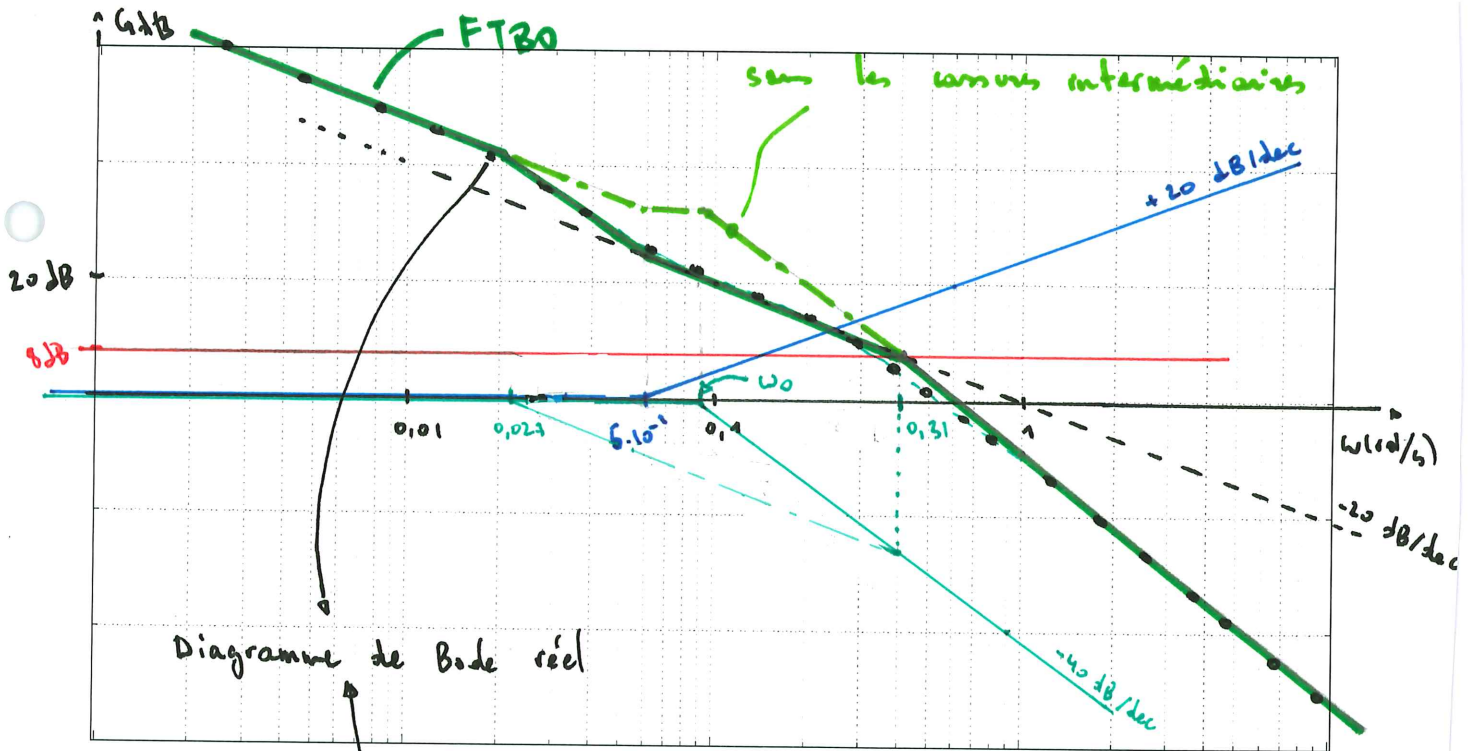 GdB
FTBO
sans les cassures intermédiaires
+20 dB/dec
20 dB
8dB
ω0
0,01
0,027
6.10⁻²
0,1
0,31
1
ω(rd/s)
-20 dB/dec
Diagramme de Bode réel
-40 dB/dec